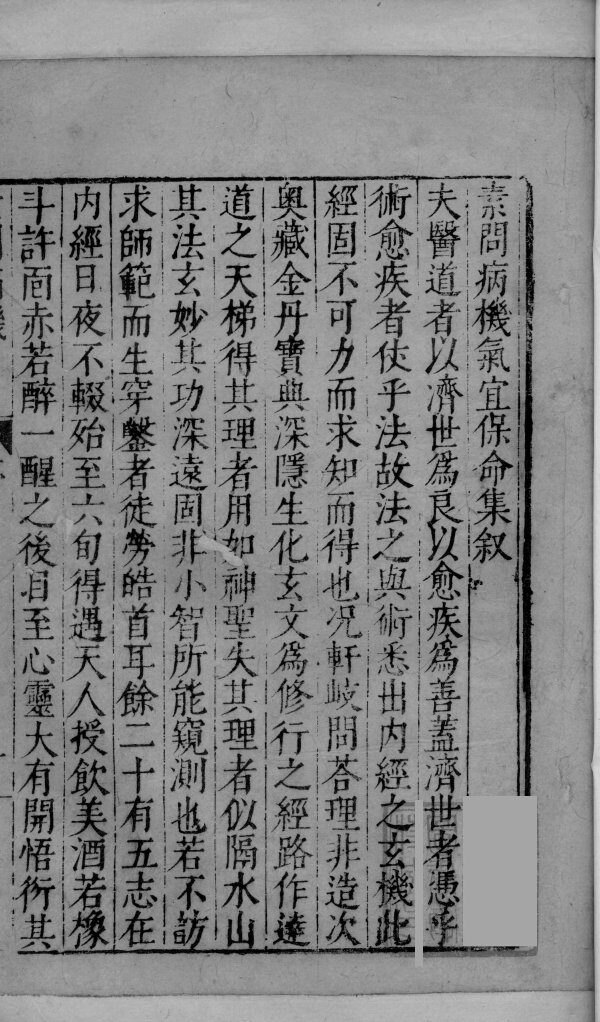 素問病機氣宜保命集叙
夫醫道者以濟世爲良以愈疾爲善蓋濟世者憑乎
術愈疾者仗乎法故法之與術悉出内經之玄機此
經固不可力而求知而得也况軒岐問荅理非造次
奥藏金丹寶典深隱生化玄文爲修行之經路作達
道之天梯得其理者用如神聖失其理者似隔水山
其法玄妙其功深遠固非小智所能窺測也若不訪
求師範而生穿鑿者徒勞皓首耳餘二十有五志在
内經日夜不輟殆至六旬得遇天人授飲美酒若橡
斗許面赤若醉一醒之後目至心靈大有開悟衍其